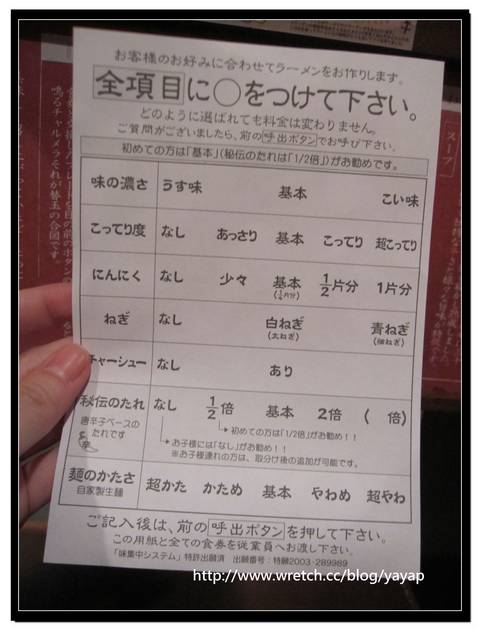 お客様のお好みに合わせてラーメンをお作りします。
全項目に○をつけて下さい。
どのように選ばれても料金は変わりません。
ご質問がございましたら、前の呼出ボタンでお呼び下さい。
初めての方は「基本」(秘伝のたれは「1/2倍」)がお勧めです。
味の濃さ うす味 基本 こい味
こってり度 なし あっさり 基本 こってり 超こってり
にんにく なし 少々 基本 1/2片分 1片分
(1/4片分)
ねぎ なし 白ねぎ 青ねぎ
(太ねぎ) (細ねぎ)
チャーシュー なし あり
秘伝のたれ なし 1/2倍 基本 2倍 ( 倍)
唐辛子ベースの
たれです
初めての方は「1/2倍」がお勧め!!
お子様には「なし」がお勧め!!
※お子様連れの方は、取分け後の追加が可能です。
麺のかたさ 超かた かため 基本 やわめ 超やわ
自家製生麺
ご記入後は、前の呼出ボタンを押して下さい。
この用紙と全ての食券を従業員へお渡し下さい。
「味集中システム」特許出願済 出願番号:特願2003-289989
http://www.wretch.cc/blog/yayap
スープ
鳴るチャルメラそれが替玉の合図です。